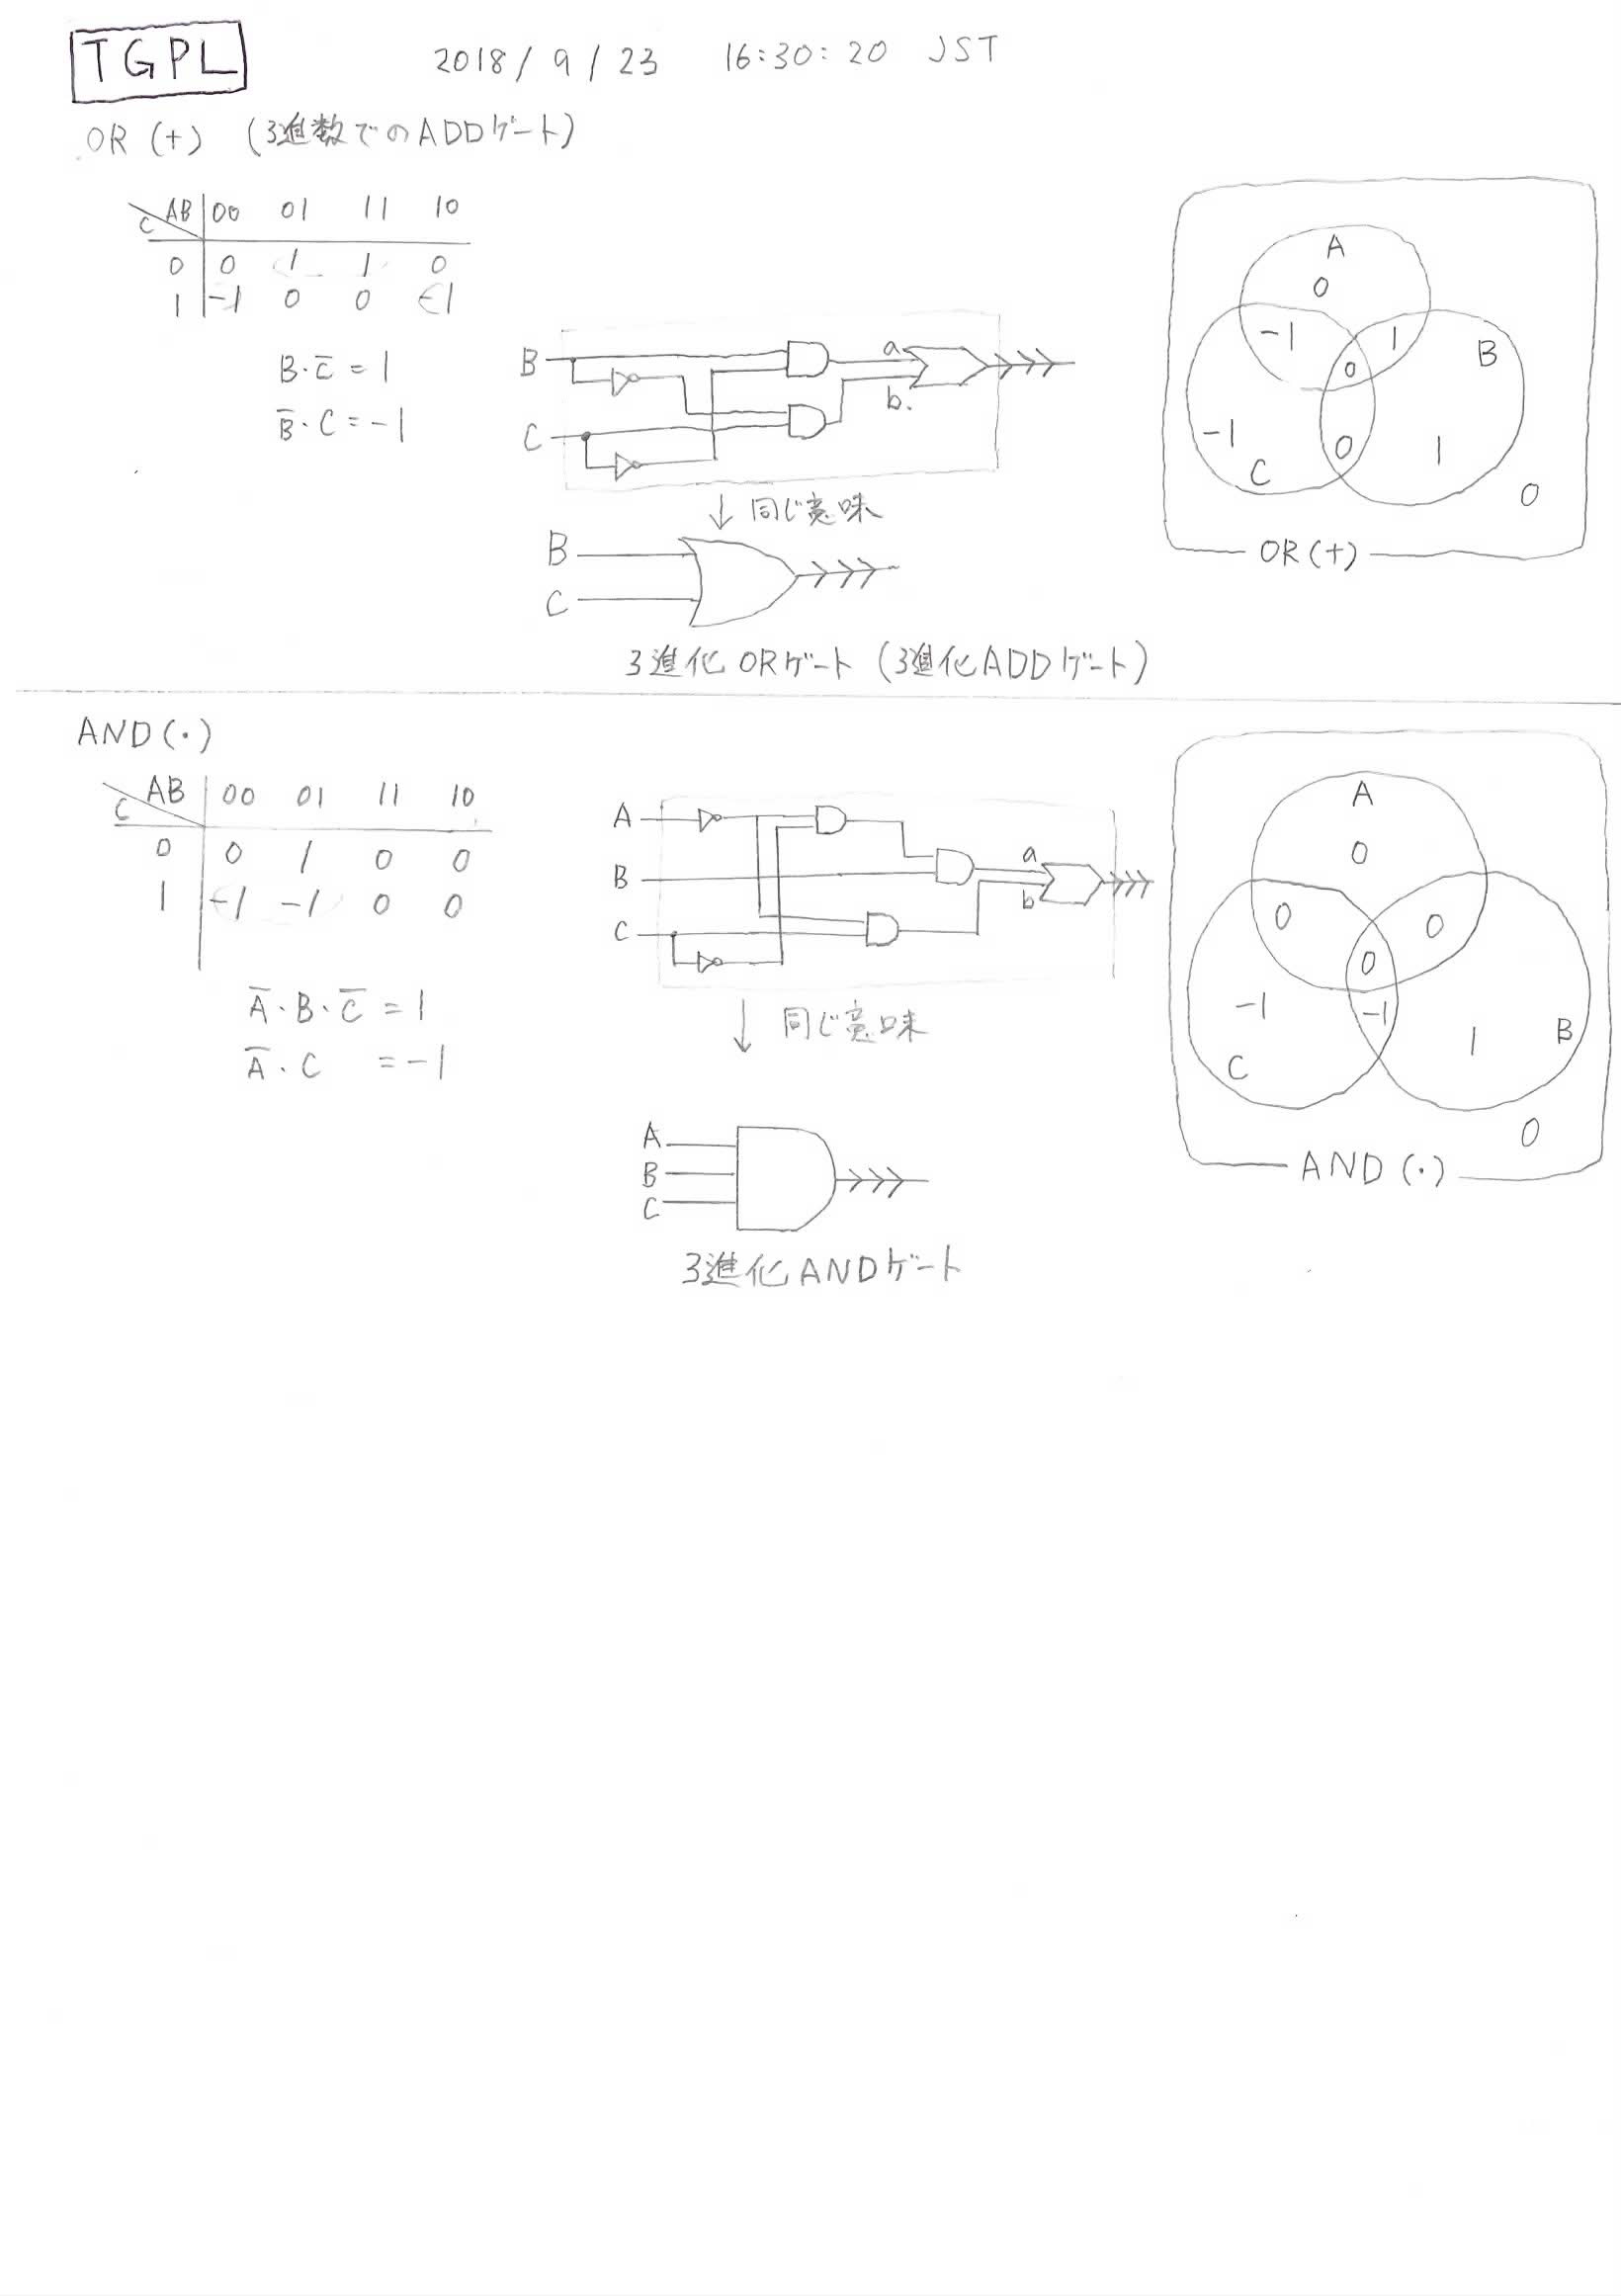 TGPL
2018/9/23 16:30:20 JST
OR (+) (3進数でのADDゲート)
C AB 00 01 11 10
0 0 1 1 0
1 -1 0 0 -1
B・C̅ = 1
B̅・C = -1
B
C
a
b.
↓ 同じ意味
B
C
3進化ORゲート (3進化ADDゲート)
A
0
-1 1
B
0
-1 0 1
C
0
OR(+)
AND(・)
C AB 00 01 11 10
0 0 1 0 0
1 -1 -1 0 0
A̅・B・C̅ = 1
A̅・C = -1
A
B
C
a
b
↓ 同じ意味
A
B
C
3進化ANDゲート
A
0
0 0
0
-1 -1 1 B
C
0
AND(・)